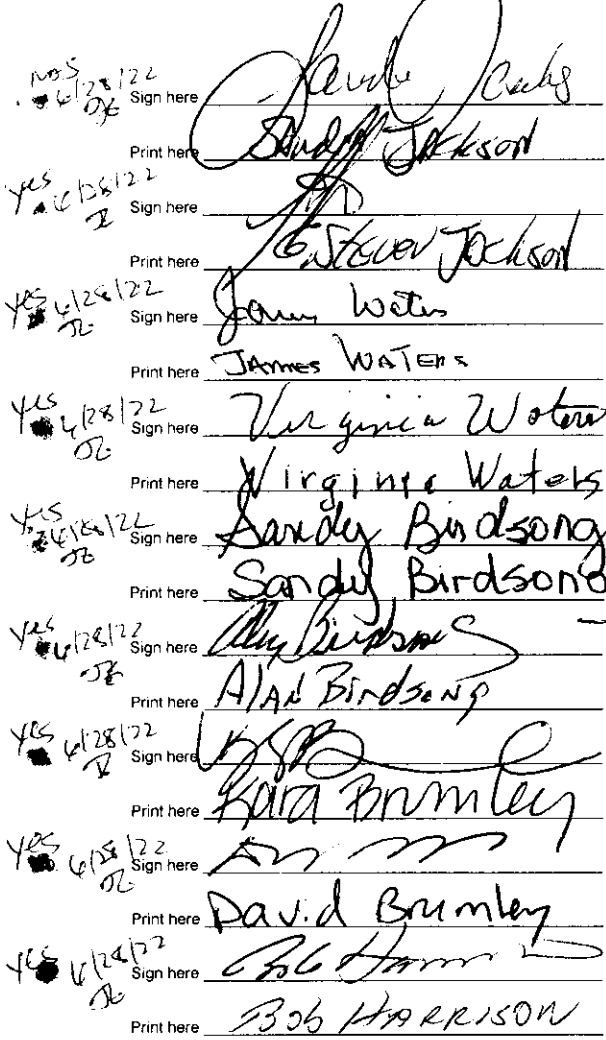 yes 6/28/22 Sign here
Print here Sandra Jackson
yes 6/28/22 Sign here
Print here G. Steven Jackson
yes 6/28/22 Sign here James Waters
Print here JAMES WATERS
yes 6/28/22 Sign here Virginia Waters
Print here Virginia Waters
yes 6/28/22 Sign here Sandy Birdsong
Print here Sandy Birdsong
yes 6/28/22 Sign here Alan Birdsong
Print here Alan Birdsong
yes 6/28/22 Sign here
Print here Kara Brumley
yes 6/28/22 Sign here
Print here David Brumley
yes 6/28/22 Sign here Bob Harrison
Print here Bob HARRISON